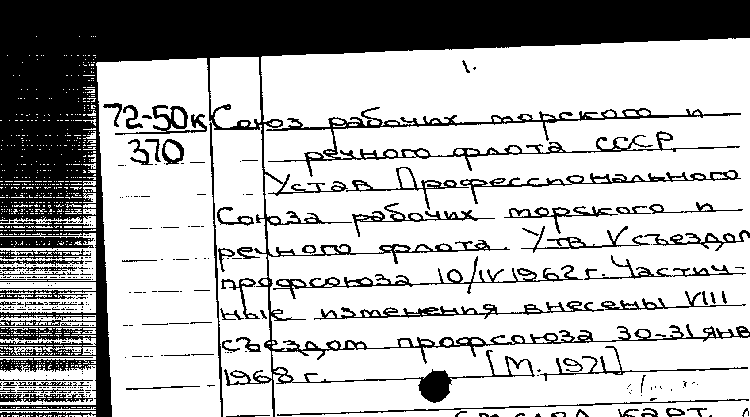 1.
72-50к Союз рабочих морского и
370 речного флота СССР.
Устав Профессионального
Союза рабочих морского и
речного флота. Утв. V съездом
профсоюза 10/IV 1962 г. Частич-
ные изменения внесены VIII
съездом профсоюза 30-31 янв
1968 г. [М., 1971]
см. след. карт.